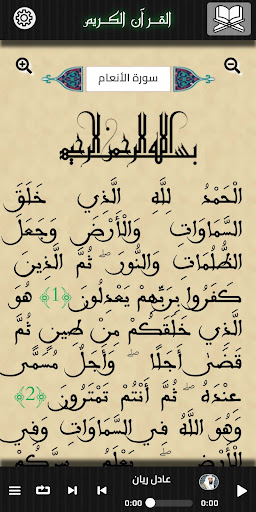 القرآن الكريم
سورة الأنعام
بسم الله الرحمن الرحيم
الْحَمْدُ لِلَّهِ الَّذِي خَلَقَ
السَّمَاوَاتِ وَالْأَرْضَ وَجَعَلَ
الظُّلُمَاتِ وَالنُّورَ ۖ ثُمَّ الَّذِينَ
كَفَرُوا بِرَبِّهِمْ يَعْدِلُونَ ﴿1﴾ هُوَ
الَّذِي خَلَقَكُمْ مِنْ طِينٍ ثُمَّ
قَضَىٰ أَجَلًا ۖ وَأَجَلٌ مُسَمًّى
عِنْدَهُ ۖ ثُمَّ أَنْتُمْ تَمْتَرُونَ
﴿2﴾
وَهُوَ اللَّهُ فِي السَّمَاوَاتِ وَفِي
الْأَرْضِ ۖ يَعْلَمُ سِرَّكُمْ
عادل ريان
0:00 0:00